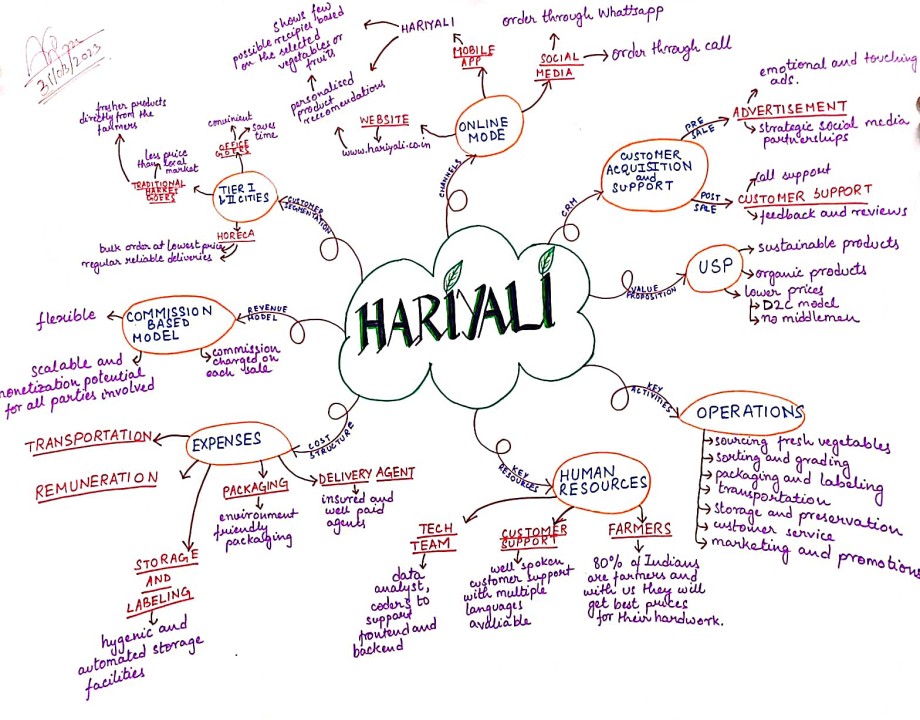 31/03/2023
HARIYALI
shows few
possible recipies based
on the selected
vegetables or
fruits
HARIYALI
MOBILE
APP
personalised
product
recomendations
WEBSITE
www.hariyali.co.in
ONLINE
MODE
CHANNELS
SOCIAL
MEDIA
order through Whatsapp
order through call
CRM
CUSTOMER
ACQUISITION
and
SUPPORT
PRE
SALE
ADVERTISEMENT
emotional and touching
ads.
strategic social media
partnerships
POST
SALE
CUSTOMER SUPPORT
call support
feedback and reviews
VALUE
PROPOSITION
USP
sustainable products
organic products
lower prices
D2C model
no middlemen
KEY
ACTIVITIES
OPERATIONS
sourcing fresh vegetables
sorting and grading
packaging and labeling
transportation
storage and preservation
customer service
marketing and promotions
KEY
RESOURCES
HUMAN
RESOURCES
TECH
TEAM
data
analyst,
coders to
support
frontend and
backend
CUSTOMER
SUPPORT
well spoken
customer support
with multiple
languages
avaliable
FARMERS
80% of Indians
are farmers and
with us they will
get best prices
for their hardwork.
COST
STRUCTURE
EXPENSES
TRANSPORTATION
REMUNERATION
STORAGE
AND
LABELING
hygenic and
automated storage
facilities
PACKAGING
environment
friendly
packaging
DELIVERY AGENT
insured and
well paid
agents
REVENUE
MODEL
COMMISSION
BASED
MODEL
flexible
scalable and
monetization potential
for all parties involved
commission
charged on
each sale
CUSTOMER
SEGMENTATION
TIER I
& II CITIES
fresher products
directly from the
farmers
TRADITIONAL
MARKET
GOERS
less price
than local
market
OFFICE
GOERS
convinient
saves
time
HORECA
bulk order at lowest price
regular reliable deliveries